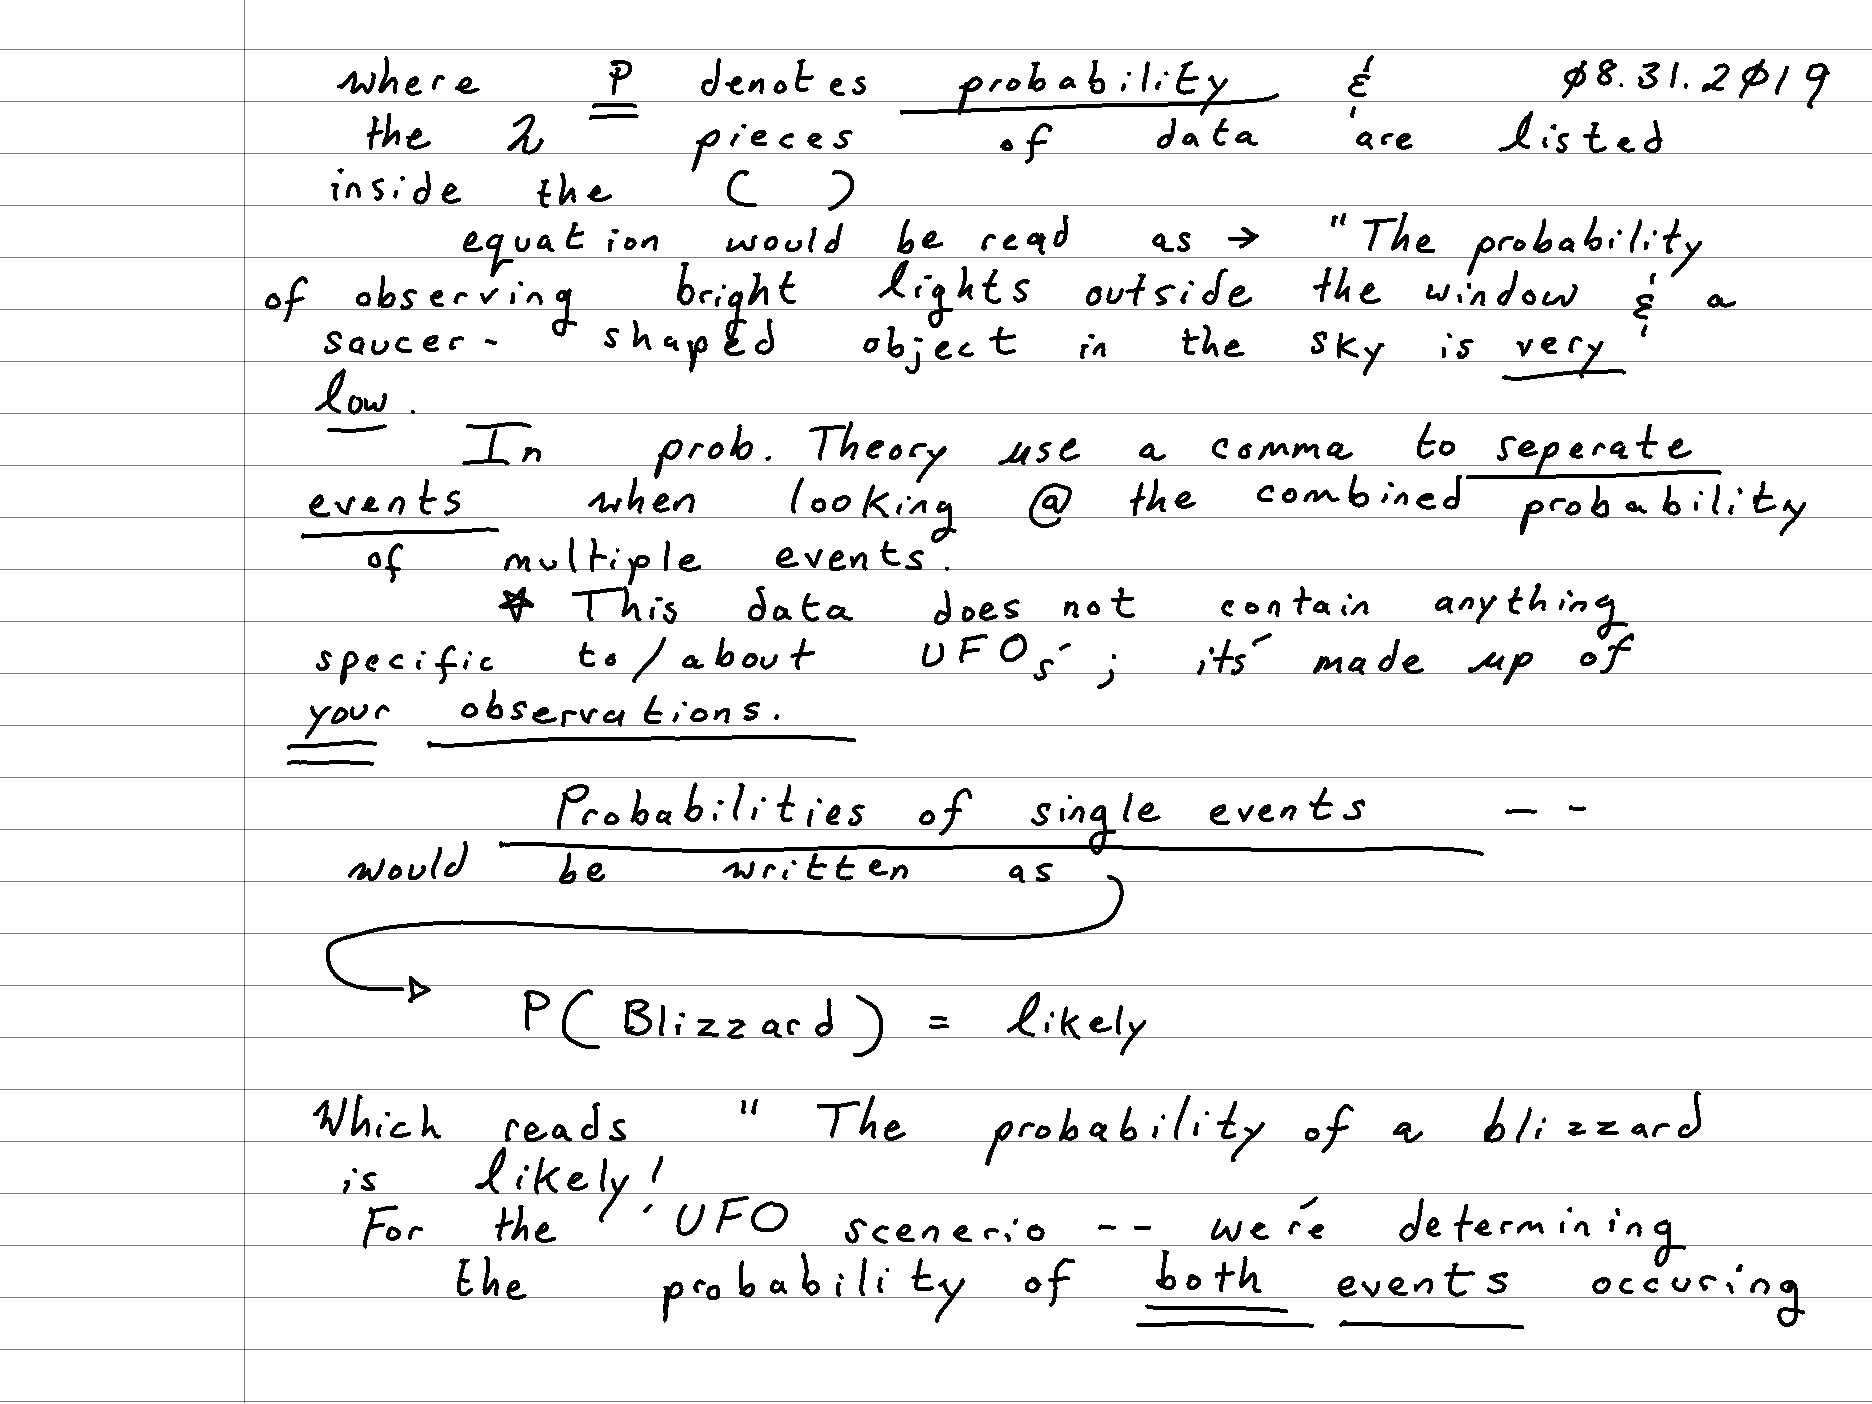 where P denotes probability & ø8.31.2ø19
the 2 pieces of data are listed
inside the ( )
equation would be read as → "The probability
of observing bright lights outside the window & a
saucer- shaped object in the sky is very
low.
In prob. Theory use a comma to seperate
events when looking @ the combined probability
of multiple events.
* This data does not contain anything
specific to/about UFOs'; its' made up of
your observations.
Probabilities of single events --
would be written as
P( Blizzard ) = likely
Which reads " The probability of a blizzard
is likely!
For the UFO scenerio -- we're determining
the probability of both events occuring